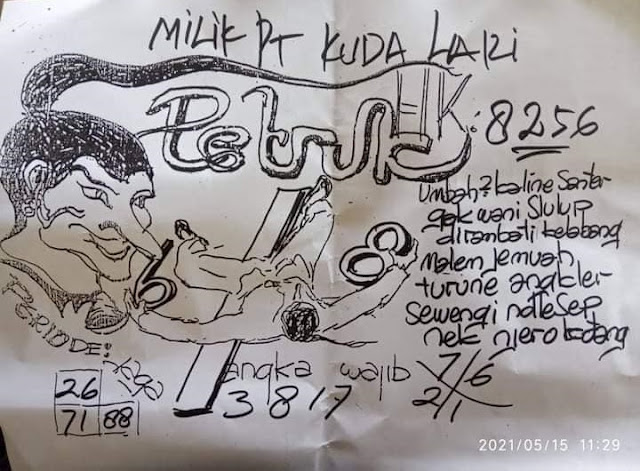 MILIK PT KUDA LARI
Petruk HK: 8256
Umbah2 kaline Santer
gak wani Slulup
dirambati kelabang
malem Jemuah
turune angkler
Sewengi ndlesep
nek njero kotang
6 1 88
PERIODE:
26
71 88
angka wajib
3 8 1 7
7/6
2/1
2021/05/15 11:29